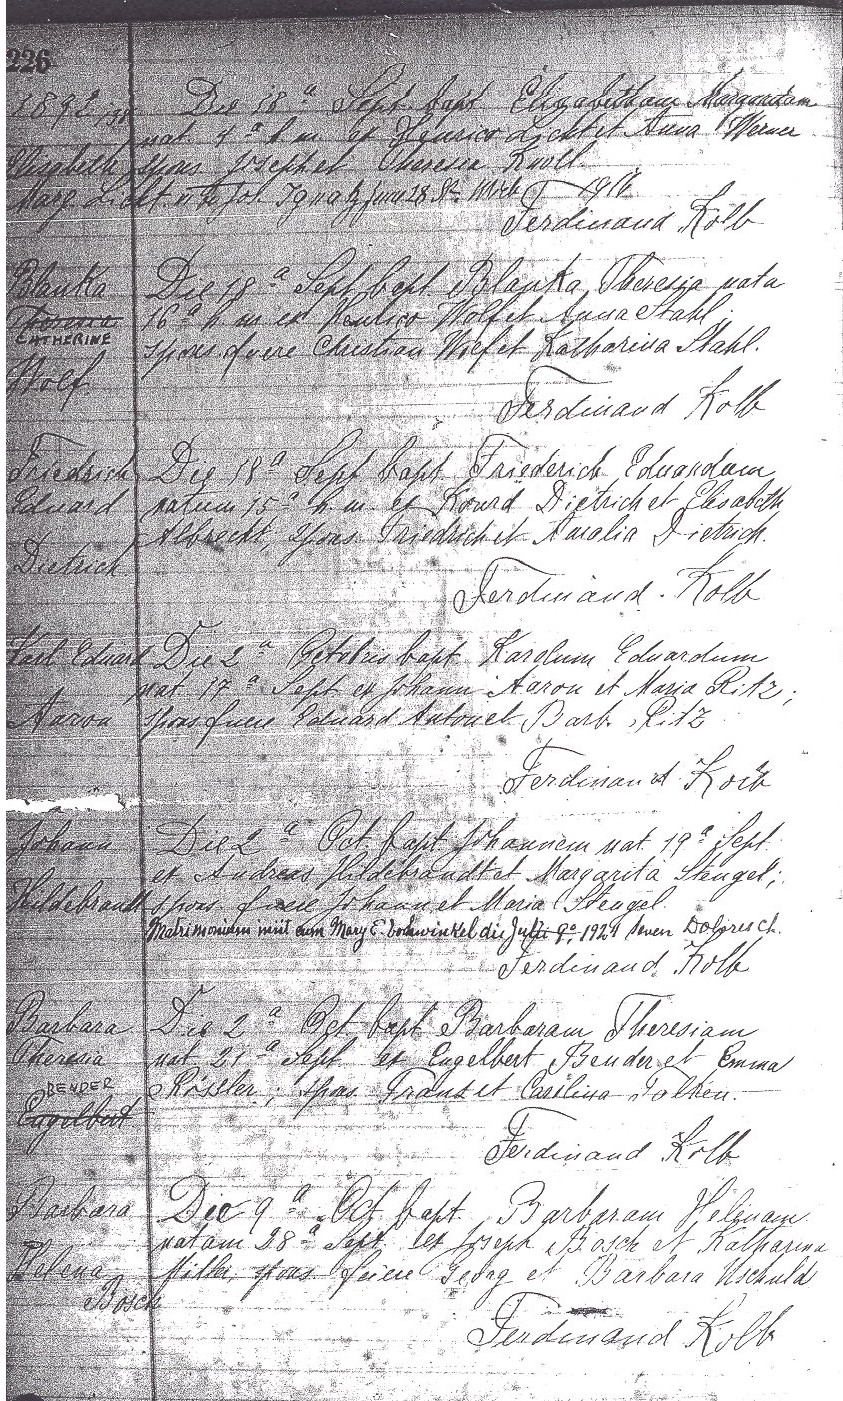 226
1892
Die 18a Sept bapt Elizabetham Margaretam
nat 4a h m ex Henrico Licht et Anna Werner
Elisabeth spons Joseph et Theresia Knoll
Marg Licht Jos. Ignatz June 28 1916
Ferdinand Kolb
Blanka Die 18a Sept bapt Blanka Theresia nata
CATHERINE 16a h m ex Henrico Wolf et Anna Stahl;
Wolf spons fuere Christian Wolf et Katharina Stahl.
Ferdinand Kolb
Friedrich Die 18a Sept bapt Friederich Eduardam
Eduard natum 15a h. m ex Konrd Dietrich et Elisabeth
Albrecht, spons Friedrich et Amalia Dietrich.
Dietrich
Ferdinand Kolb
Karl Eduard Die 2a Octobris bapt Karolum Eduardum
nat 17a Sept ex Johann Aaron et Maria Ritz;
Aaron spons fuere Eduard Anton et Barb. Ritz
Ferdinand Kolb
Johann Die 2a Oct bapt Johannem nat 19a Sept
ex Andreas Hildebrandt et Margarita Stengel;
Hildebrandt spons fuere Johann et Maria Stengel.
Matrimonium iniit cum Mary E. die 9a, 1921 Dolores ch.
Ferdinand Kolb
Barbara Die 2a Oct bapt Barbaram Theresiam
Theresia nat 21a Sept ex Engelbert Bender et Emma
BENDER Rössler; spons Franz et Carolina
Engelbert
Ferdinand Kolb
Barbara Die 9a Oct bapt Barbaram Helenam
natam 28a Sept ex Joseph Bosch et Katharina
Helena Miller, spons fuere Georg et Barbara Uschuld
Bosch
Ferdinand Kolb